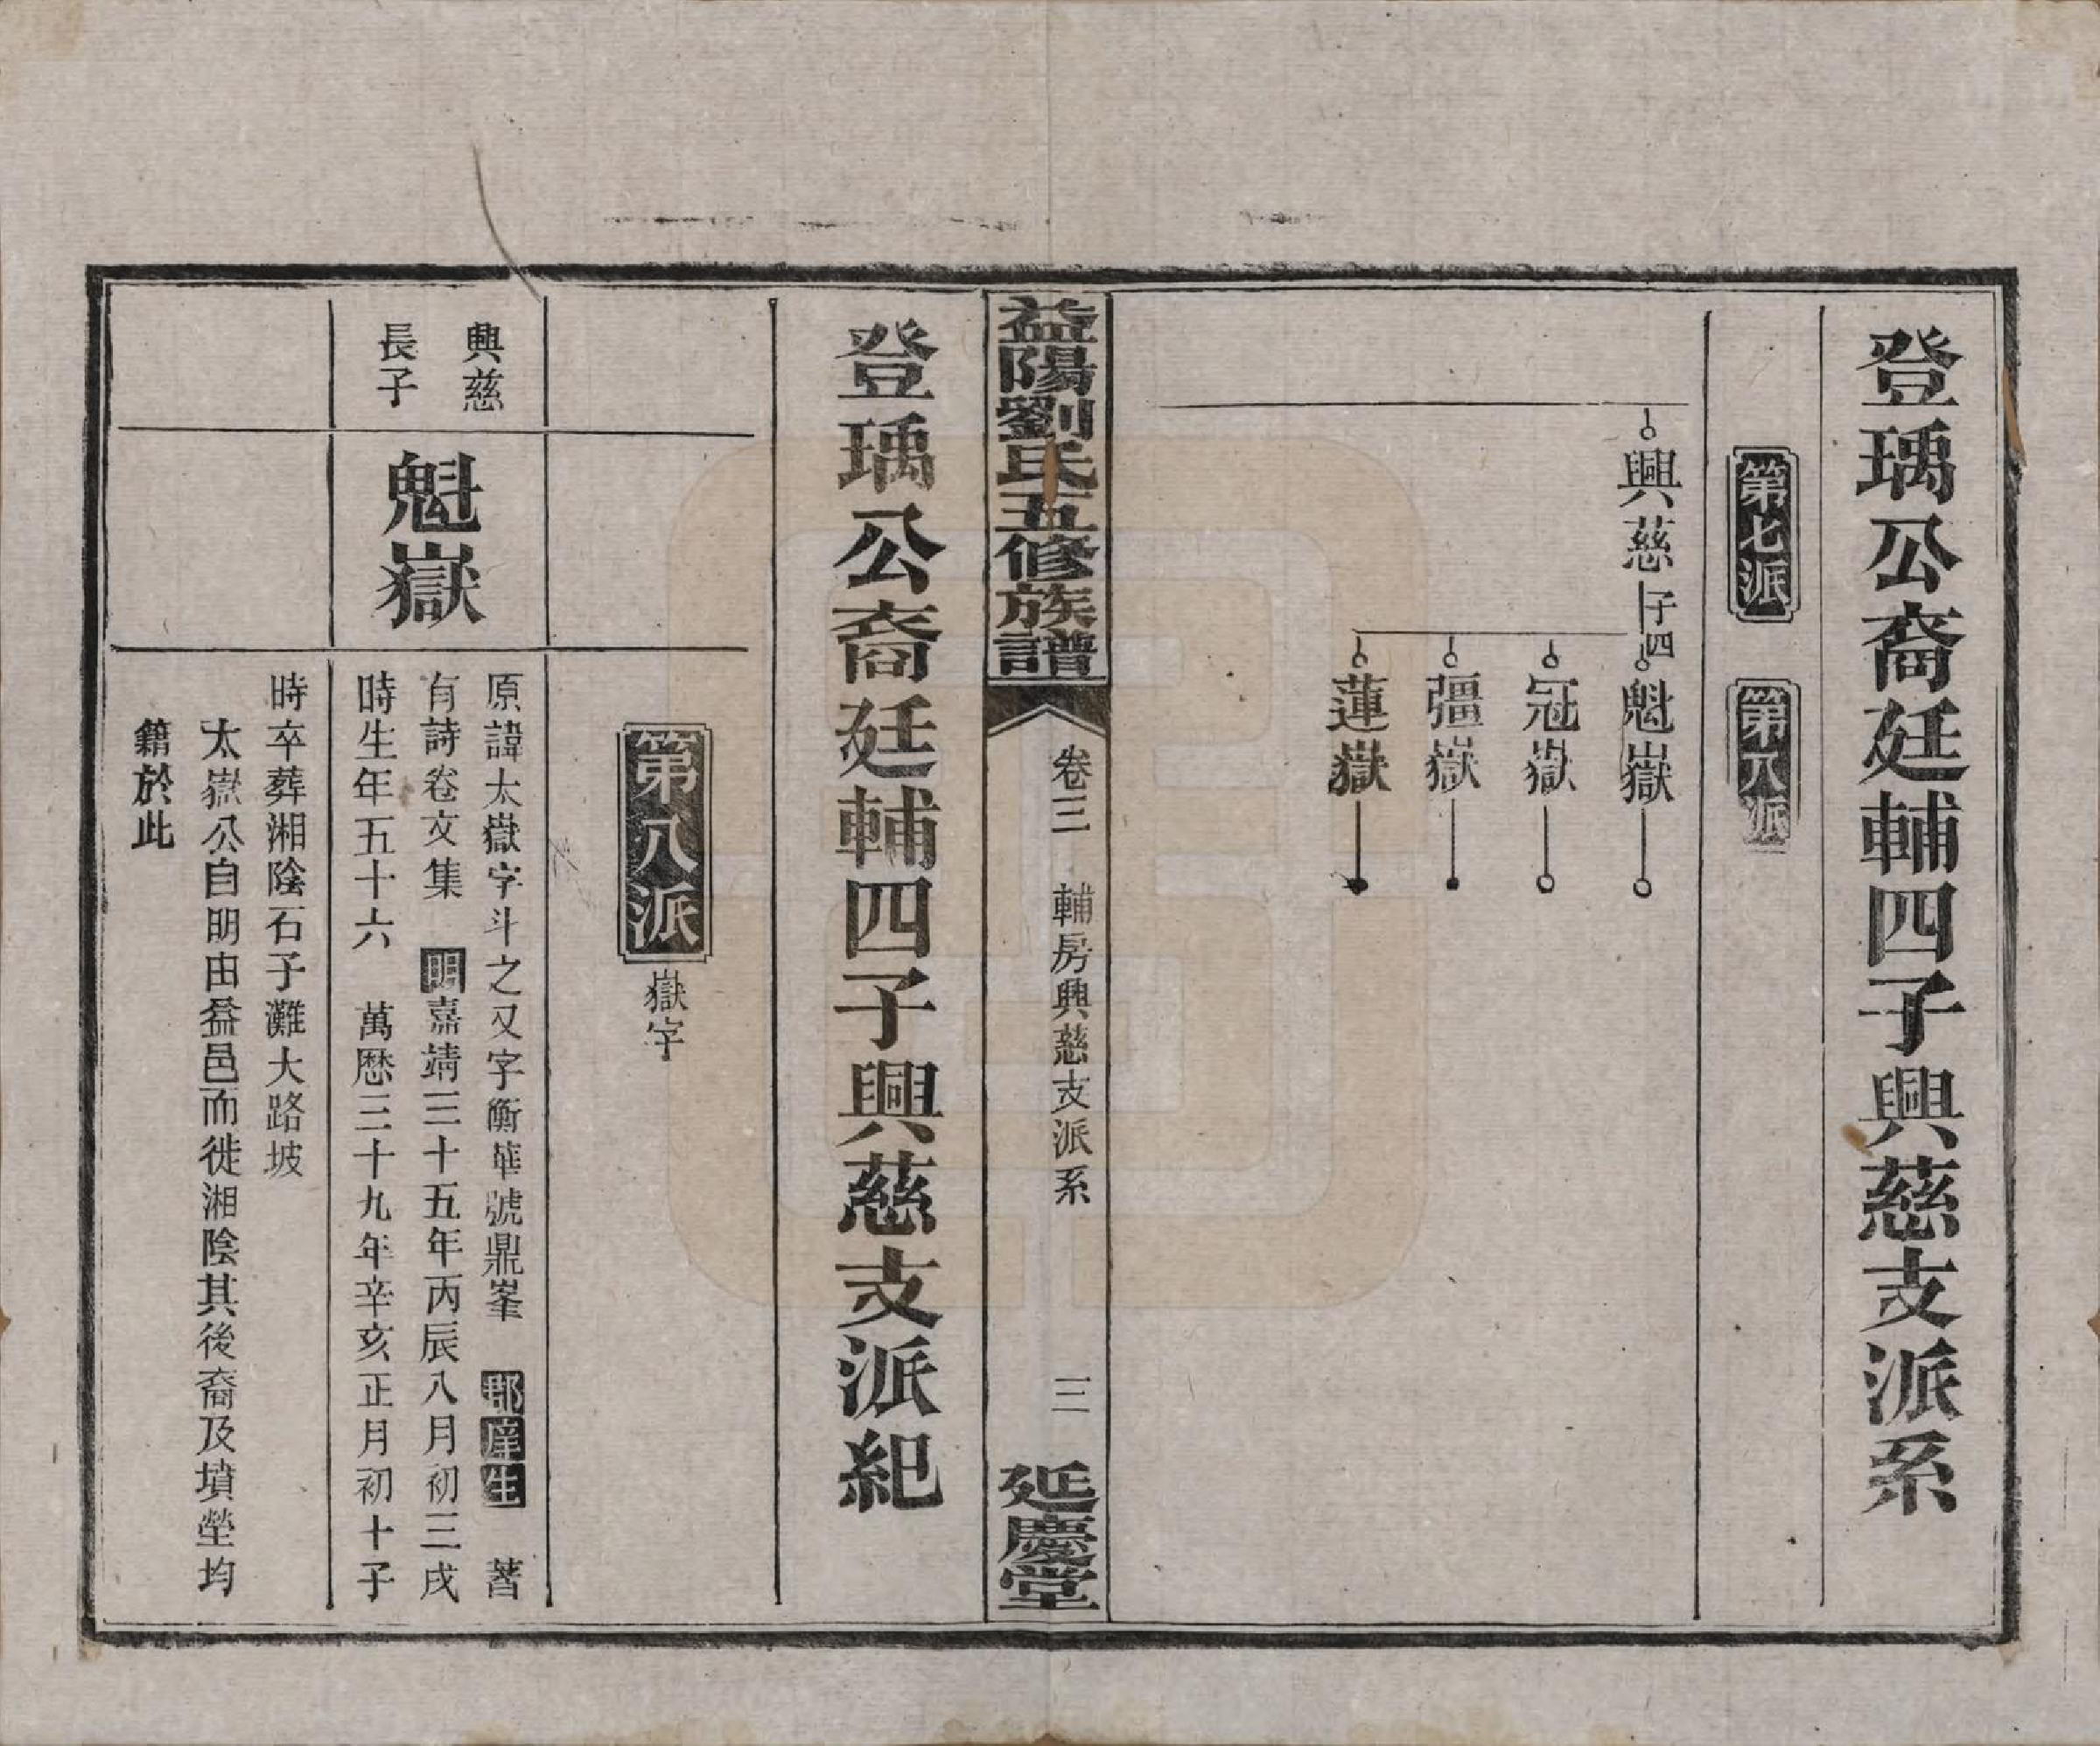 登瑀公裔廷輔四子興慈支派系
第七派
第八派
興慈
子四
魁嶽
冠嶽
彊嶽
蓮嶽
益陽劉氏五修族譜
卷三
輔房興慈支派系
三
延慶堂
登瑀公裔廷輔四子興慈支派紀
第八派
嶽字
興慈
長子
魁嶽
原諱太嶽字斗之又字衡華號鼎峯 郡庠生 著
有詩卷文集 明嘉靖三十五年丙辰八月初三戌
時生年五十六 萬歷三十九年辛亥正月初十子
時卒葬湘陰石子灘大路坡
太嶽公自明由益邑而徙湘陰其後裔及墳塋均
籍於此